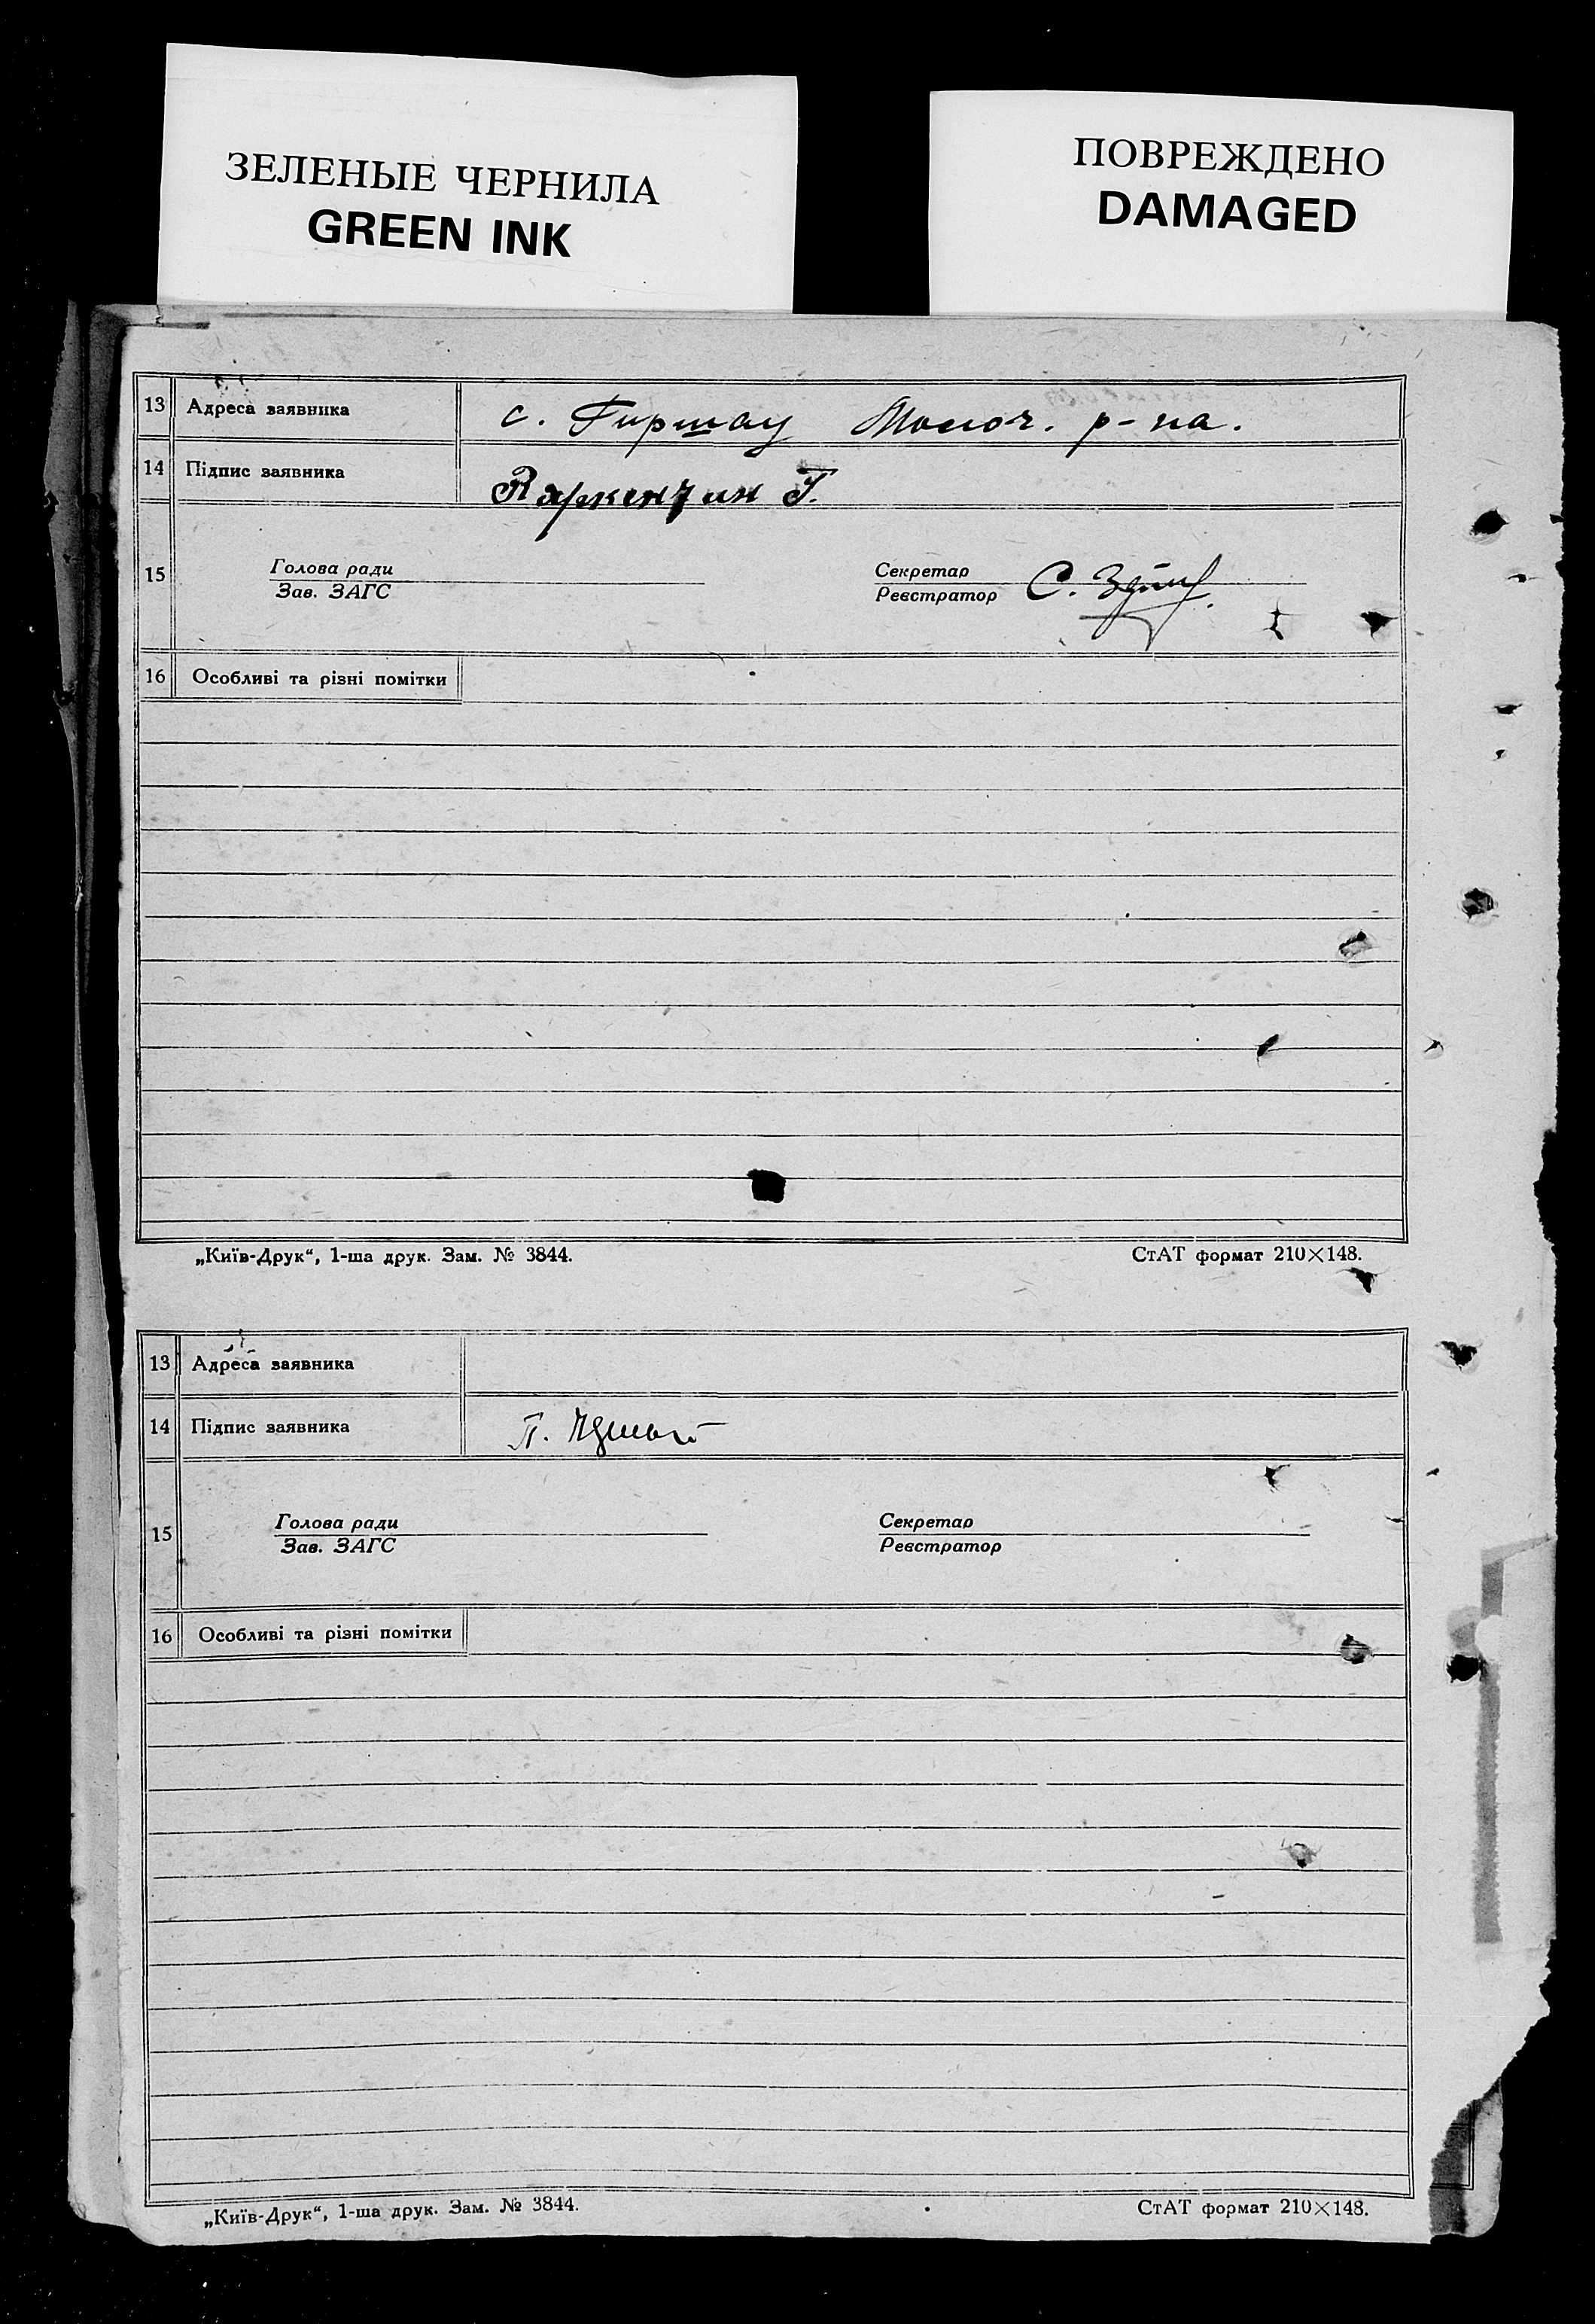 ЗЕЛЕНЫЕ ЧЕРНИЛА
GREEN INK
ПОВРЕЖДЕНО
DAMAGED
13 Адреса заявника с. Гиршау Молоч. р-на.
14 Підпис заявника Г.
15 Голова ради Секретар С.
Зав. ЗАГС Реєстратор
16 Особливі та різні помітки
„Київ-Друк“, 1-ша друк. Зам. № 3844. СтАТ формат 210×148.
13 Адреса заявника
14 Підпис заявника П.
15 Голова ради Секретар
Зав. ЗАГС Реєстратор
16 Особливі та різні помітки
„Київ-Друк“, 1-ша друк. Зам. № 3844. СтАТ формат 210×148.